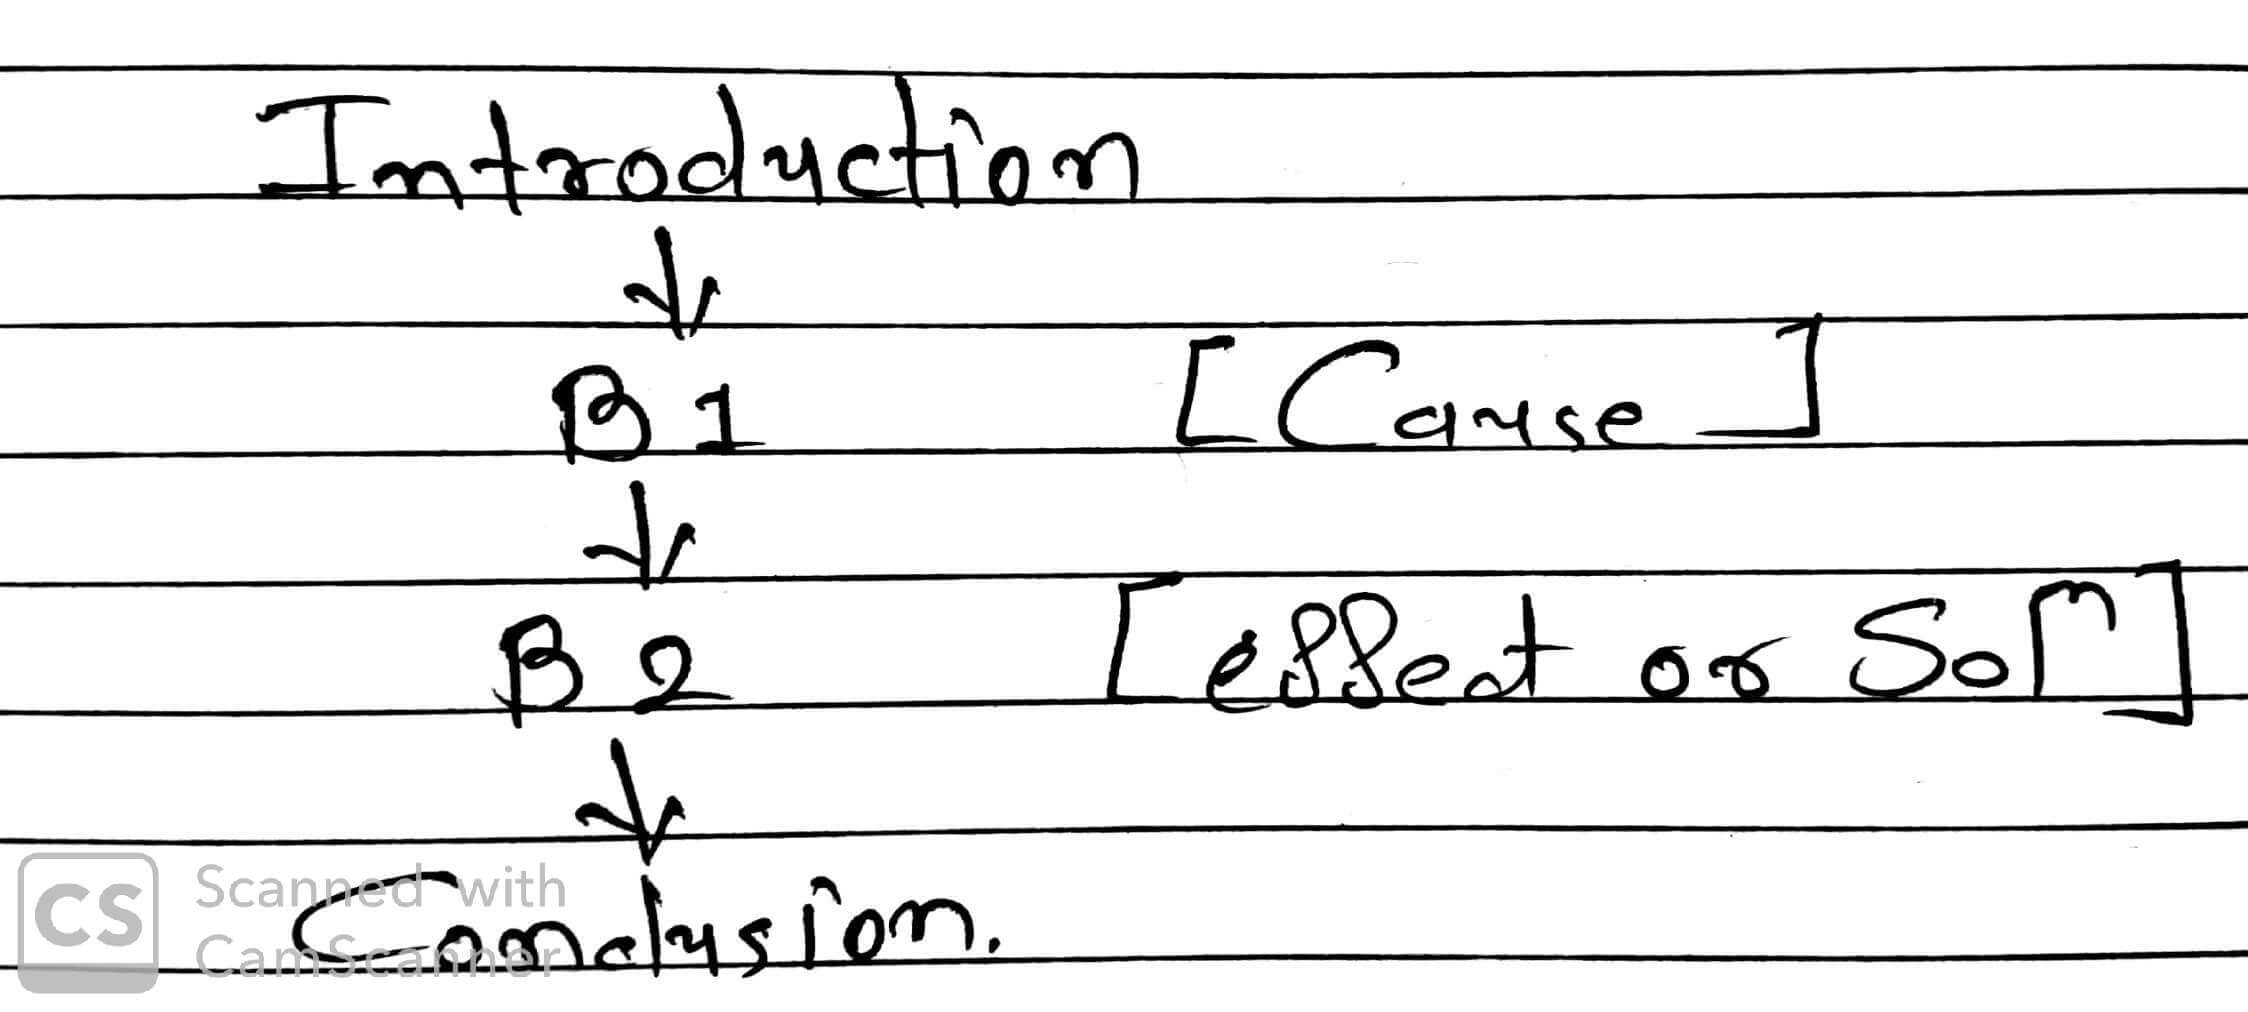 Introduction
↓
B1 [Cause]
↓
B2 [effect or Solⁿ]
↓
Conclusion.
CS Scanned with
CamScanner